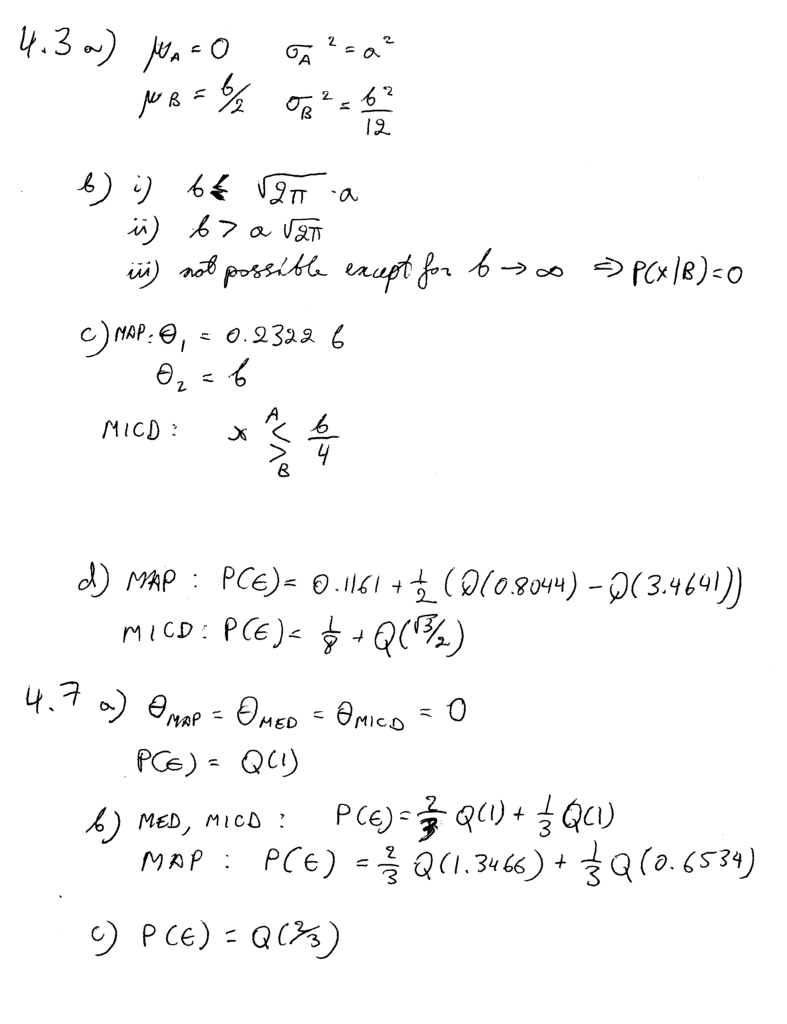 4.3 a) μ_A = 0   σ_A² = a²
μ_B = b/2   σ_B² = b²/12
b) i) b ≤ √2π · a
ii) b > a √2π
iii) not possible except for b → ∞ ⇒ P(x|B) = 0
c) MAP: θ₁ = 0.2322 b
θ₂ = b
MICD: x A < > B b/4
d) MAP : P(ϵ) = 0.1161 + 1/2 (Q(0.8044) - Q(3.4641))
MICD : P(ϵ) = 1/8 + Q(√3/2)
4.7 a) θ_MAP = θ_MED = θ_MICD = 0
P(ϵ) = Q(1)
b) MED, MICD : P(ϵ) = 2/3 Q(1) + 1/3 Q(1)
MAP : P(ϵ) = 2/3 Q(1.3466) + 1/3 Q(0.6534)
c) P(ϵ) = Q(2/3)